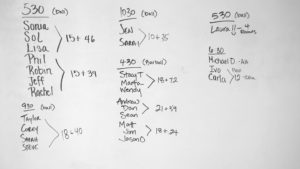 530 (Bowl)
Sonia
Sol
Liza
15 + 46
Phil
Robin
Jeff
Rachel
15 + 39
930 (Bowl)
Taylor
Corey
Sarah
Steve
18 + 40
1030 (Bowl)
Jen
Sarah
10 + 35
430
Stacy T
Marta
Wendy
18 + 72
Andrew
Dan
Sean
21 + 39
Matt
Jim
Jason D
18 + 24
530 (Bowl)
Laura
6:30
Michael D
Ivo
Carla